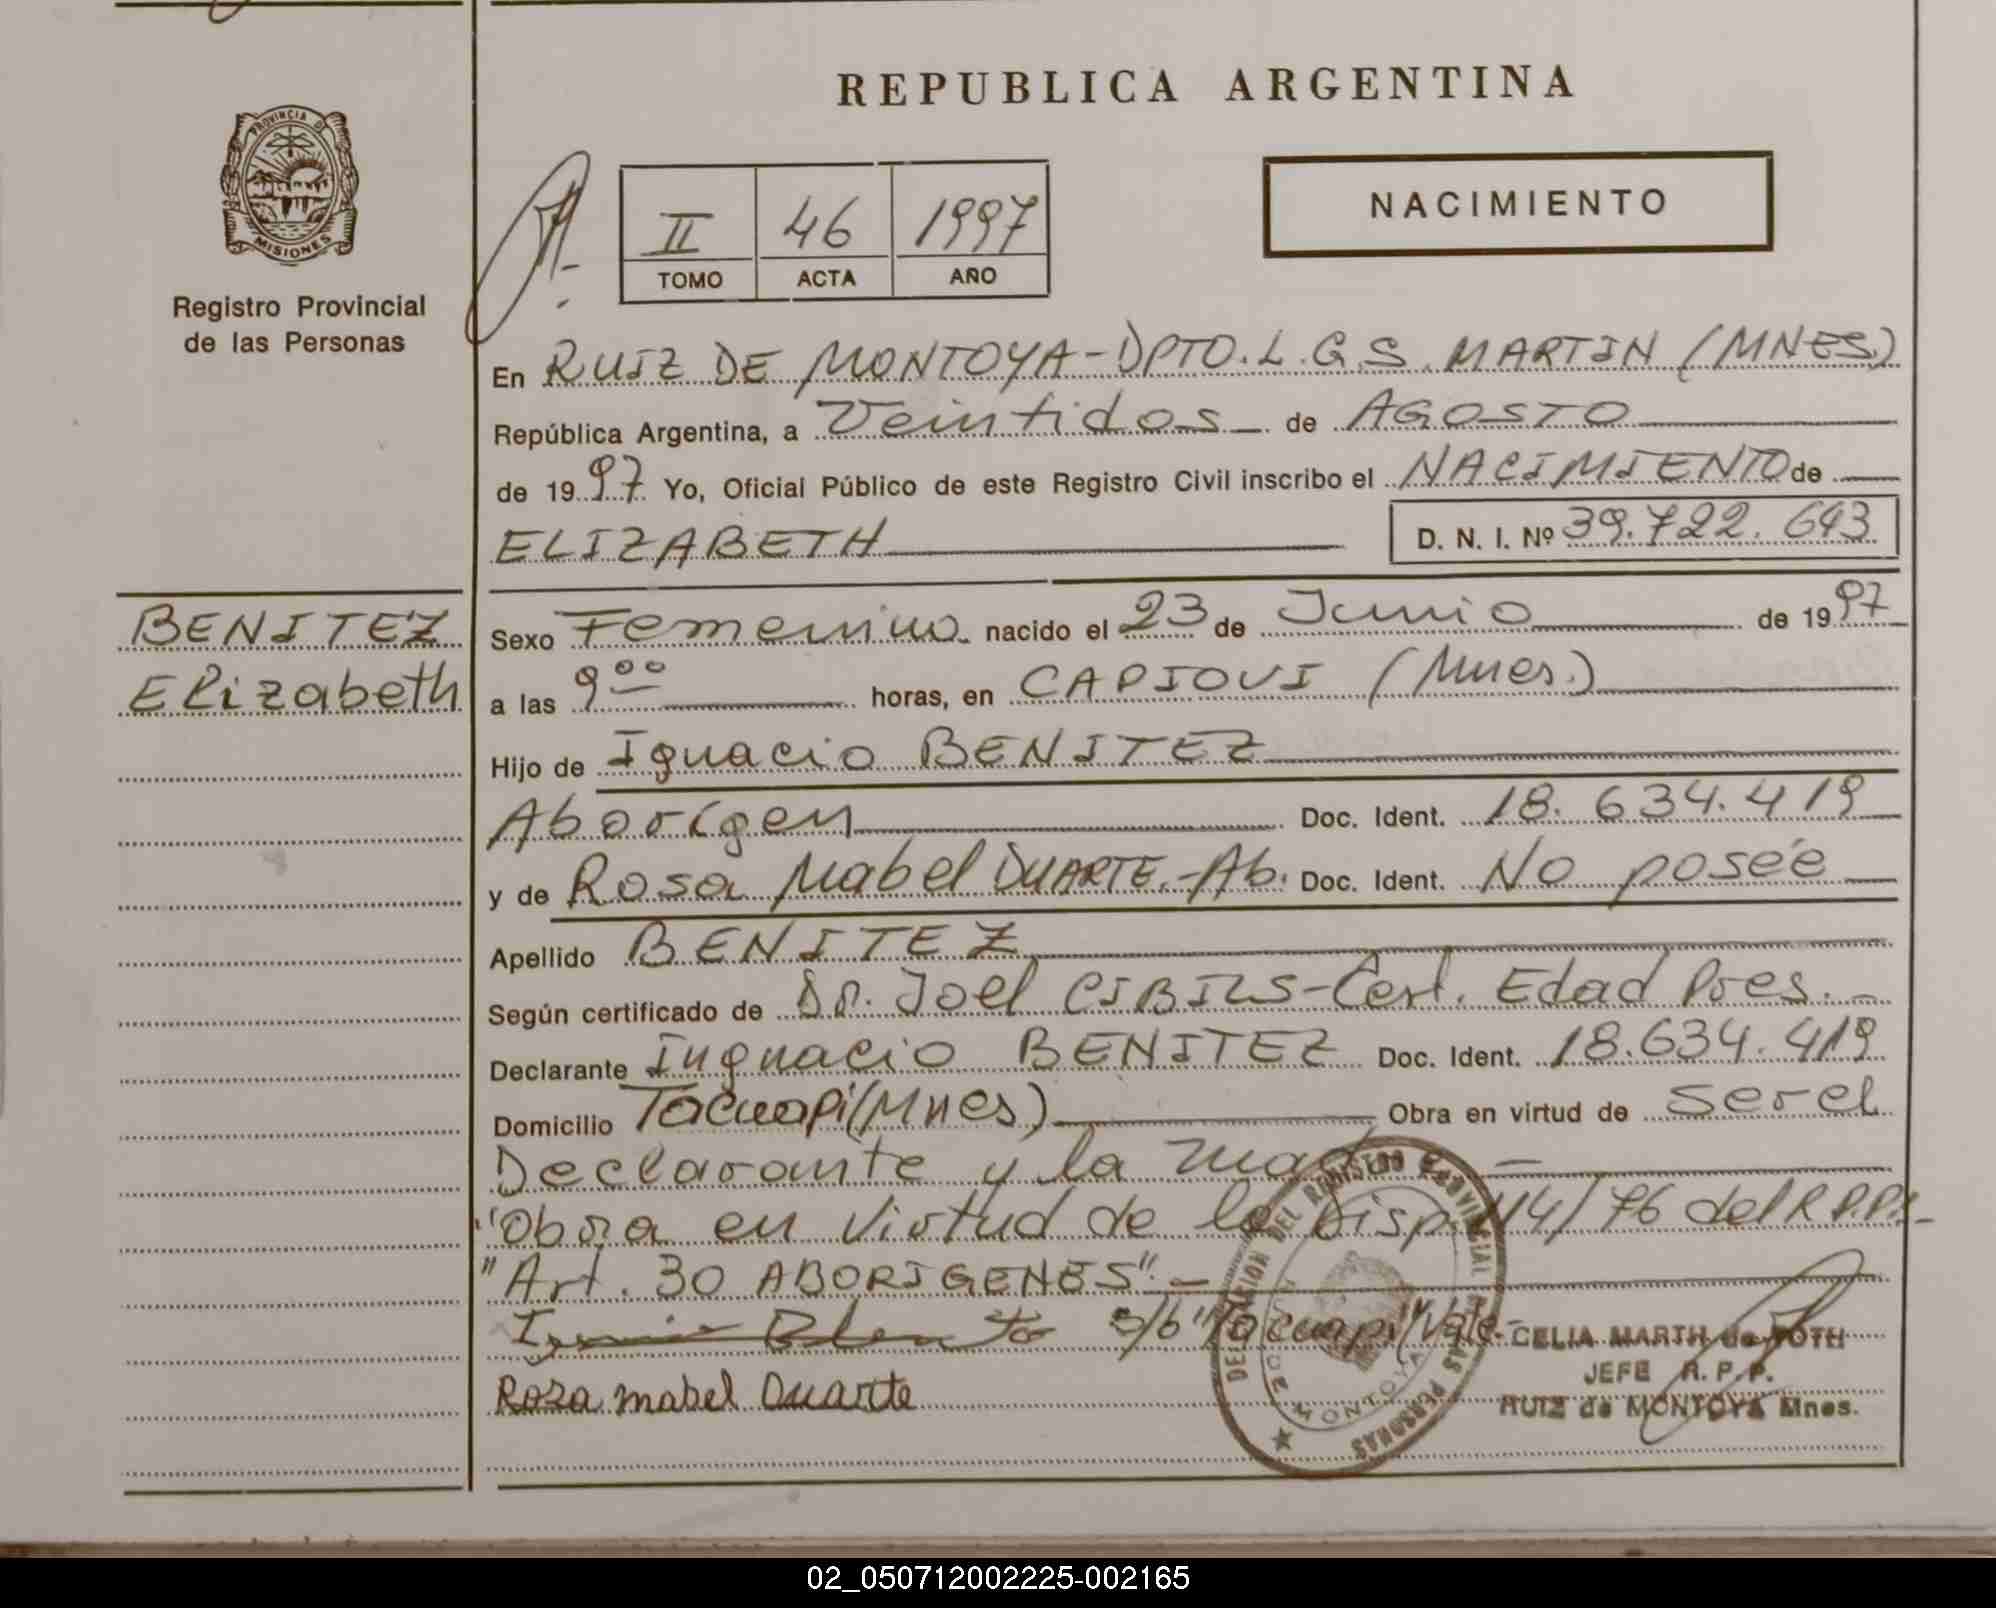 REPUBLICA ARGENTINA
PROVINCIA DE
MISIONES
Registro Provincial
de las Personas
II 46 1997
TOMO ACTA AÑO
NACIMIENTO
En RUIZ DE MONTOYA-DPTO. L.G.S. MARTIN (MNES.)
República Argentina, a Veintidos de AGOSTO
de 1997 Yo, Oficial Público de este Registro Civil inscribo el NACIMIENTO de
ELIZABETH D. N. I. Nº 39.722.643
BENITEZ
Elizabeth
Sexo Femenino nacido el 23 de Junio de 1997
a las 9 00 horas, en CAPIOVI (Mnes.)
Hijo de Ignacio BENITEZ
Aborígen Doc. Ident. 18.634.419
y de Rosa Mabel DUARTE.-Ab. Doc. Ident. No posée
Apellido BENITEZ
Según certificado de Dr. Joel CIBILS-Cert. Edad Pres.-
Declarante Ingnacio BENITEZ Doc. Ident. 18.634.419
Domicilio Tacuapi (Mnes) Obra en virtud de ser el
Declarante y la
"Obra en virtud de la Disp. 14/76 del R.P.P.-
"Art. 30 ABORIGENES".-
s/b "Tacuapi" Vale-
Rosa mabel Duarte
DELEGACION DEL REGISTRO PROVINCIAL DE LAS PERSONAS
MONTOYA
CELIA MARTH de TOTH
JEFE R. P. P.
RUIZ de MONTOYA Mnes.
02_050712002225-002165